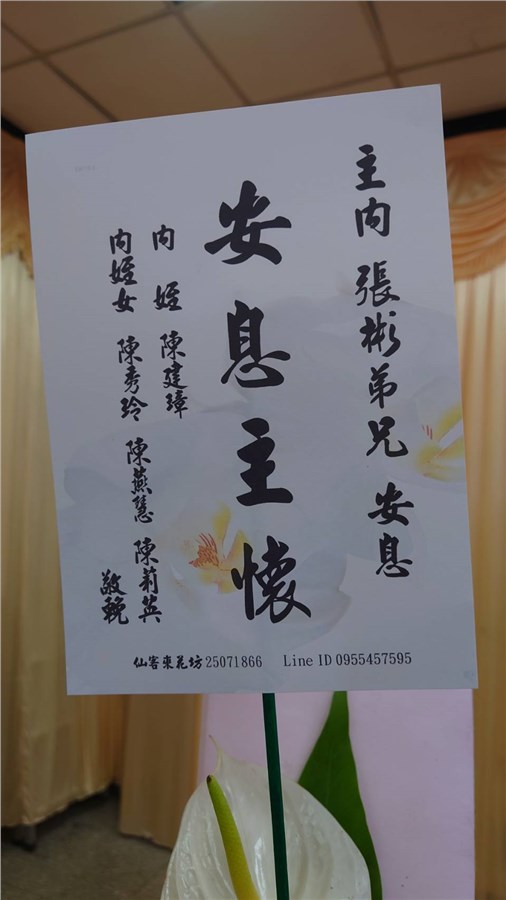 主內 張彬弟兄 安息
安息主懷
內姪 陳建璋
內姪女 陳秀玲 陳燕慧 陳莉英
敬輓
仙客來花坊25071866 Line ID 0955457595